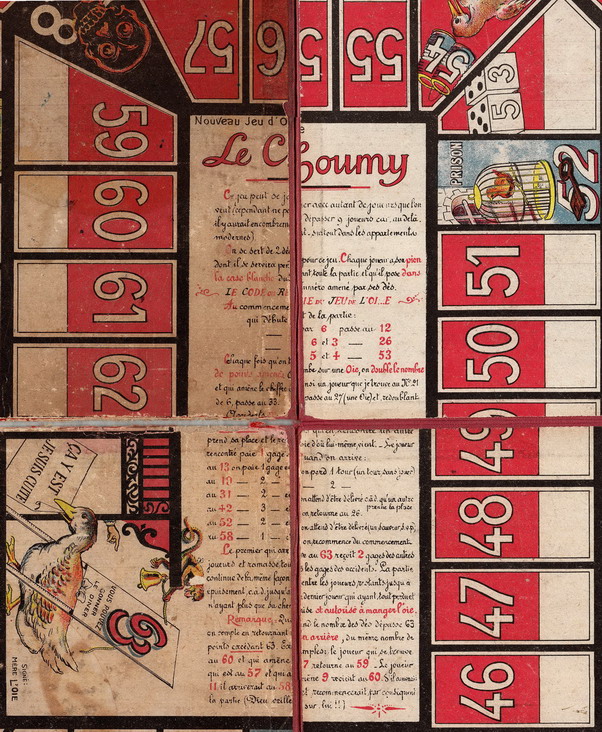 8
57
56
5
55
54
59
60
61
62
53
5 3
PRISON
52
51
50
49
48
47
46
Nouveau Jeu d'O
Le Choumy
Ce jeu peut se jo er avec autant de joueurs que l'on
veut (cependant ne po dépasser 9 joueurs car, au delà,
il y aurait encombrem t, surtout dans les appartements
modernes).
On se sert de 2 dé pour ce jeu. Chaque joueur a son pion
dont il se servira pen ant toute la partie et qu'il pose dans
la case blanche du
LE CODE DU R LE DU JEU DE L'OI...E
Au commenceme t de la partie:
qui débute par 6 passe au 12
6 et 3 — 26
5 et 4 — 53
Chaque fois qu'on tombe sur une Oie, on double le nombre
de points amenés nsi un joueur qui se trouve au N° 21
et qui amène le chiffre passe au 27 (une Oie) et, redoublant
de 6, passe au 33.
prend sa place et le r e d'où lui-même vient. — Le joueur
rencontré paie 1 gage uand on arrive:
au 13 on paie 1 gage e on perd 1 tour (un tour sans jouer)
au 19 — 2 — 2 —
au 31 — 2 — n attend d'être délivré c.à.d. qu'un autre
prenne la place
au 42 — 3 — on retourne au 26.
au 52 — 2 — on attend d'être délivré
au 58 — 1 — on recommence du commencement.
Le premier qui arr e au 63 reçoit 2 gages des autres
joueurs et ramasse tou les gages des accidents. La partie
continue de la même façon entre les joueurs restants jusqu'à
épuisement, c.à.d. jusqu'a dernier joueur qui, ayant tout perdu et
n'ayant plus que sa che ise est autorisé à manger l'oie.
Remarque. Qu nd le nombre des dés dépasse 63
on compte en retournant en arrière, du même nombre de
points excédant 63. Ex emples: le joueur qui se trouve
au 60 et qui amène 7 retourne au 59. Le joueur
qui est au 57 et qui a mène 9 revient au 60. S'il amenait
11 il arriverait au 58 et recommencerait par conséquent
la partie (Dieu veille sur lui!!)
ÇA Y EST
JE SUIS CUITE
VOUS POUVEZ
GAGNER
LE DINER
63
Signé:
MÈRE L'OIE